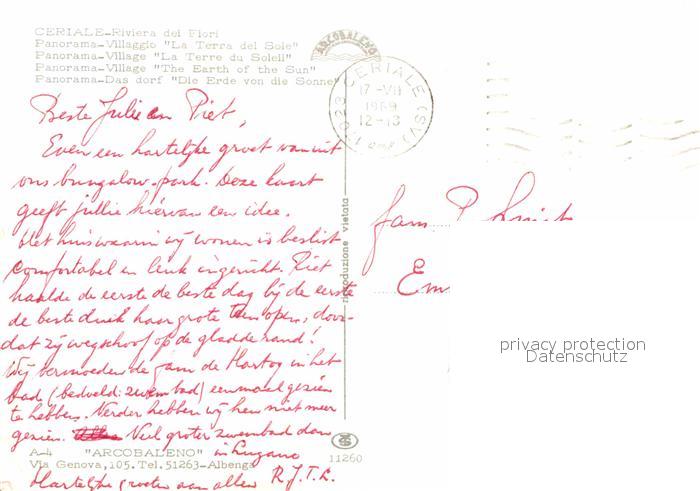 CERIALE-Riviera dei Fiori
Panorama-Villaggio "La Terra del Sole"
Panorama-Village "La Terre du Soleil"
Panorama-Village "The Earth of the Sun"
Panorama-Das dorf "Die Erde von die Sonne"
ARCOBALENO
17023 CERIALE (SV)
17-VII
1969
12-13
Beste Julie en Piet,
Even een hartelijke groet vanuit
ons bungalow-park. Deze kaart
geeft jullie hiervan een idee.
Het huis waarin wij wonen is beslist
comfortabel en leuk ingericht. Piet
haalde de eerste de beste dag bij de eerste
de beste duik haar grote teen open, door-
dat zij wegschoof op de gladde rand!
Wij vermoeden de fam de Hartog in het
bad (bedoeld: zwembad) eenmaal gezien
te hebben. Verder hebben wij hen niet meer
gezien. Veel groter zwembad dan
in Lugano
Hartelijke groeten aan allen R.J.T.L.
riproduzione vietata
Fam P.
Em
privacy protection
Datenschutz
A-4 "ARCOBALENO"
Via Genova,105.Tel.51263-Albenga
11260